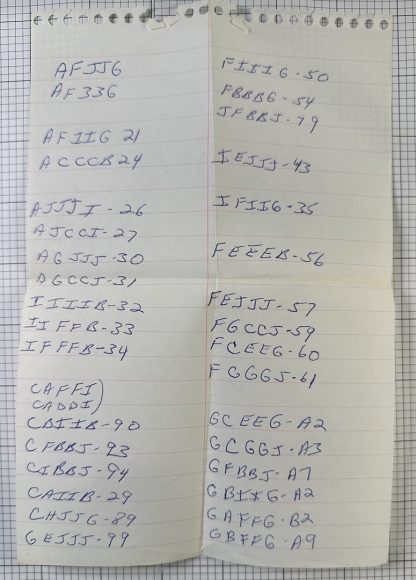 AFJJG
AF33G
AFIIG-21
ACCCB24
AJJJI-26
AJCCI-27
AGJJJ-30
AGCCJ-31
IIIIB-32
IIFFB-33
IFFFB-34
CAFFI)
CADDI)
CBIIB-90
CFBBJ-93
CIBBJ-94
CAIIB-29
CHJJG-89
GEJJJ-99
FIIIG-50
FBBBG-54
JFBBJ-79
IEJJJ-43
IFIIG-35
FEEEB-56
FEJJJ-57
FGCCJ-59
FCEEG-60
FCGGJ-61
GCEEG-A2
GCGGJ-A3
GFBBJ-A7
GBIIG-A2
GAFFG-B2
GBFFG-A9